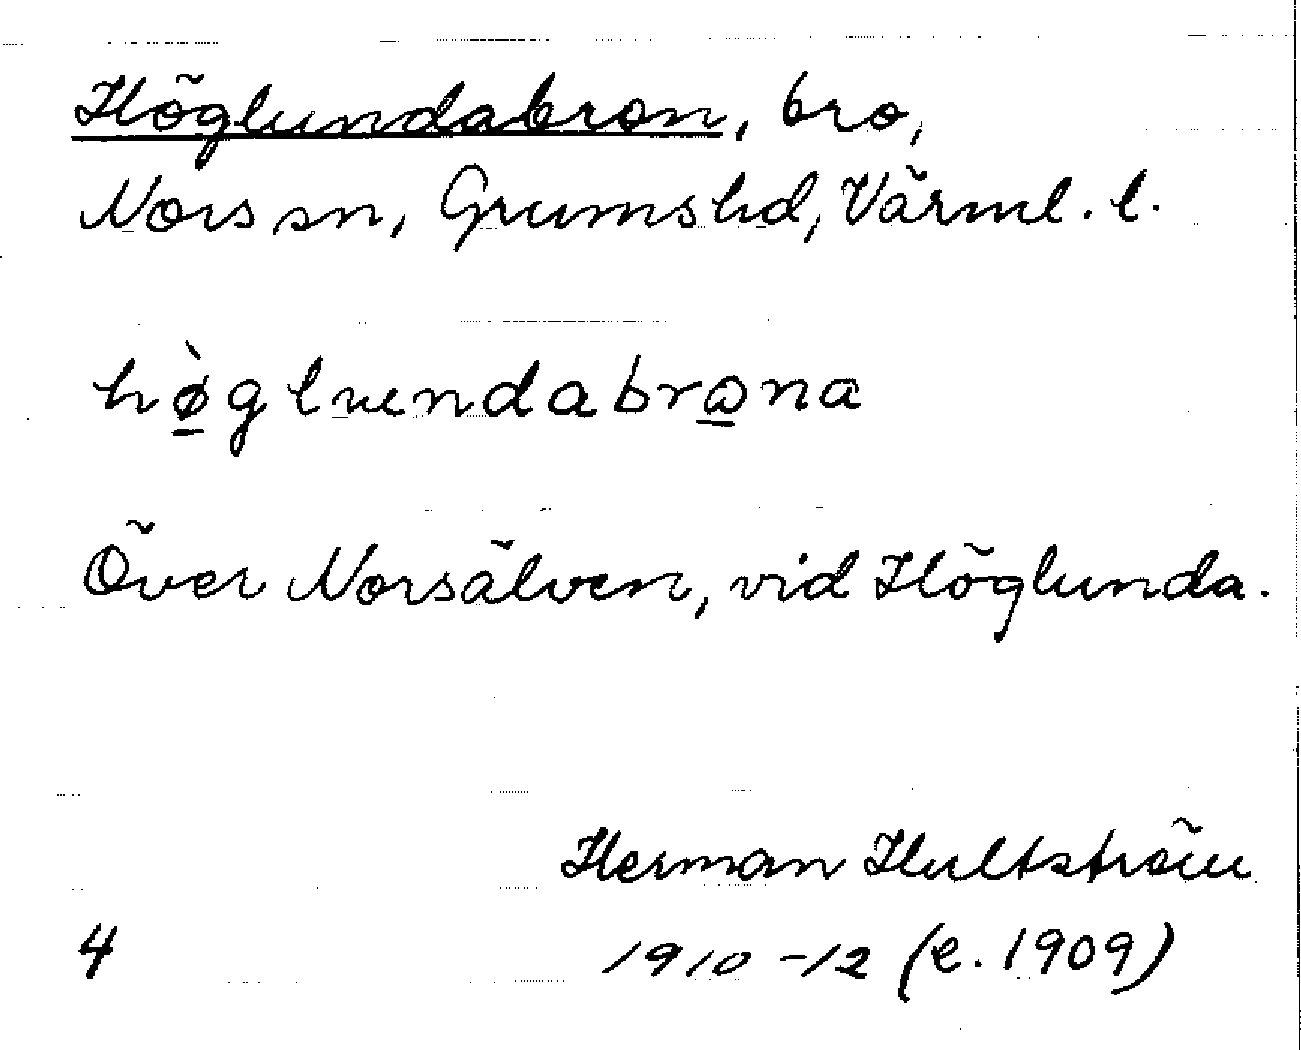 Höglundabron, bro,
Nors sn, Grums hd, Värml. l.
hø̲̀glundabro̲na
Över Norsälven, vid Höglunda.
Herman Hultström
4 1910-12 (e. 1909)